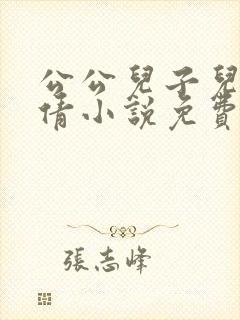 公公兒子兒
倩小說免費
張志峰